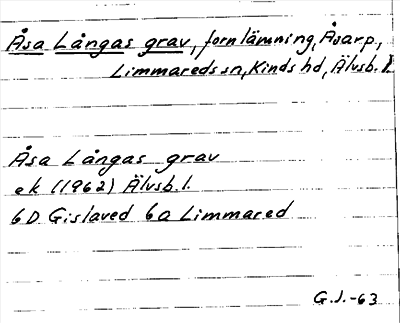 Åsa Långas grav, fornlämning, Åsarp,
Limmareds sn, Kinds hd, Älvsb. l.
Åsa Långas grav
ek (1962) Älvsb. l.
6D Gislaved 6a Limmared
G.J.-63